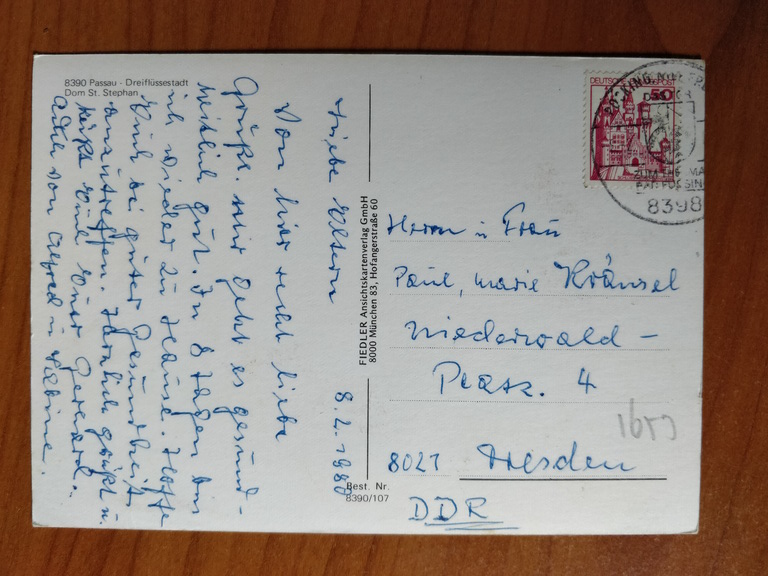 8390 Passau - Dreiflüssestadt
Dom St. Stephan
Liebe Eltern 8.2.1980
Von hier recht liebe
Grüße. Mir geht es gesund-
heitlich gut. In 8 Tagen bin
ich wieder zu Hause. Hoffe
Euch bei guter Gesundheit
anzutreffen. Herzlich grüßt u.
küßt Euch Euer Gerhard.
auch von Alfred u. Sabine.
FIEDLER Ansichtskartenverlag GmbH
8000 München 83, Hofangerstraße 60
Best. Nr.
8390/107
DEUTSCHE BUNDESPOST
50
8398
Herrn u Frau
Paul, Marie Kränsel
Niederwald-
Platz. 4
8021 Dresden
DDR